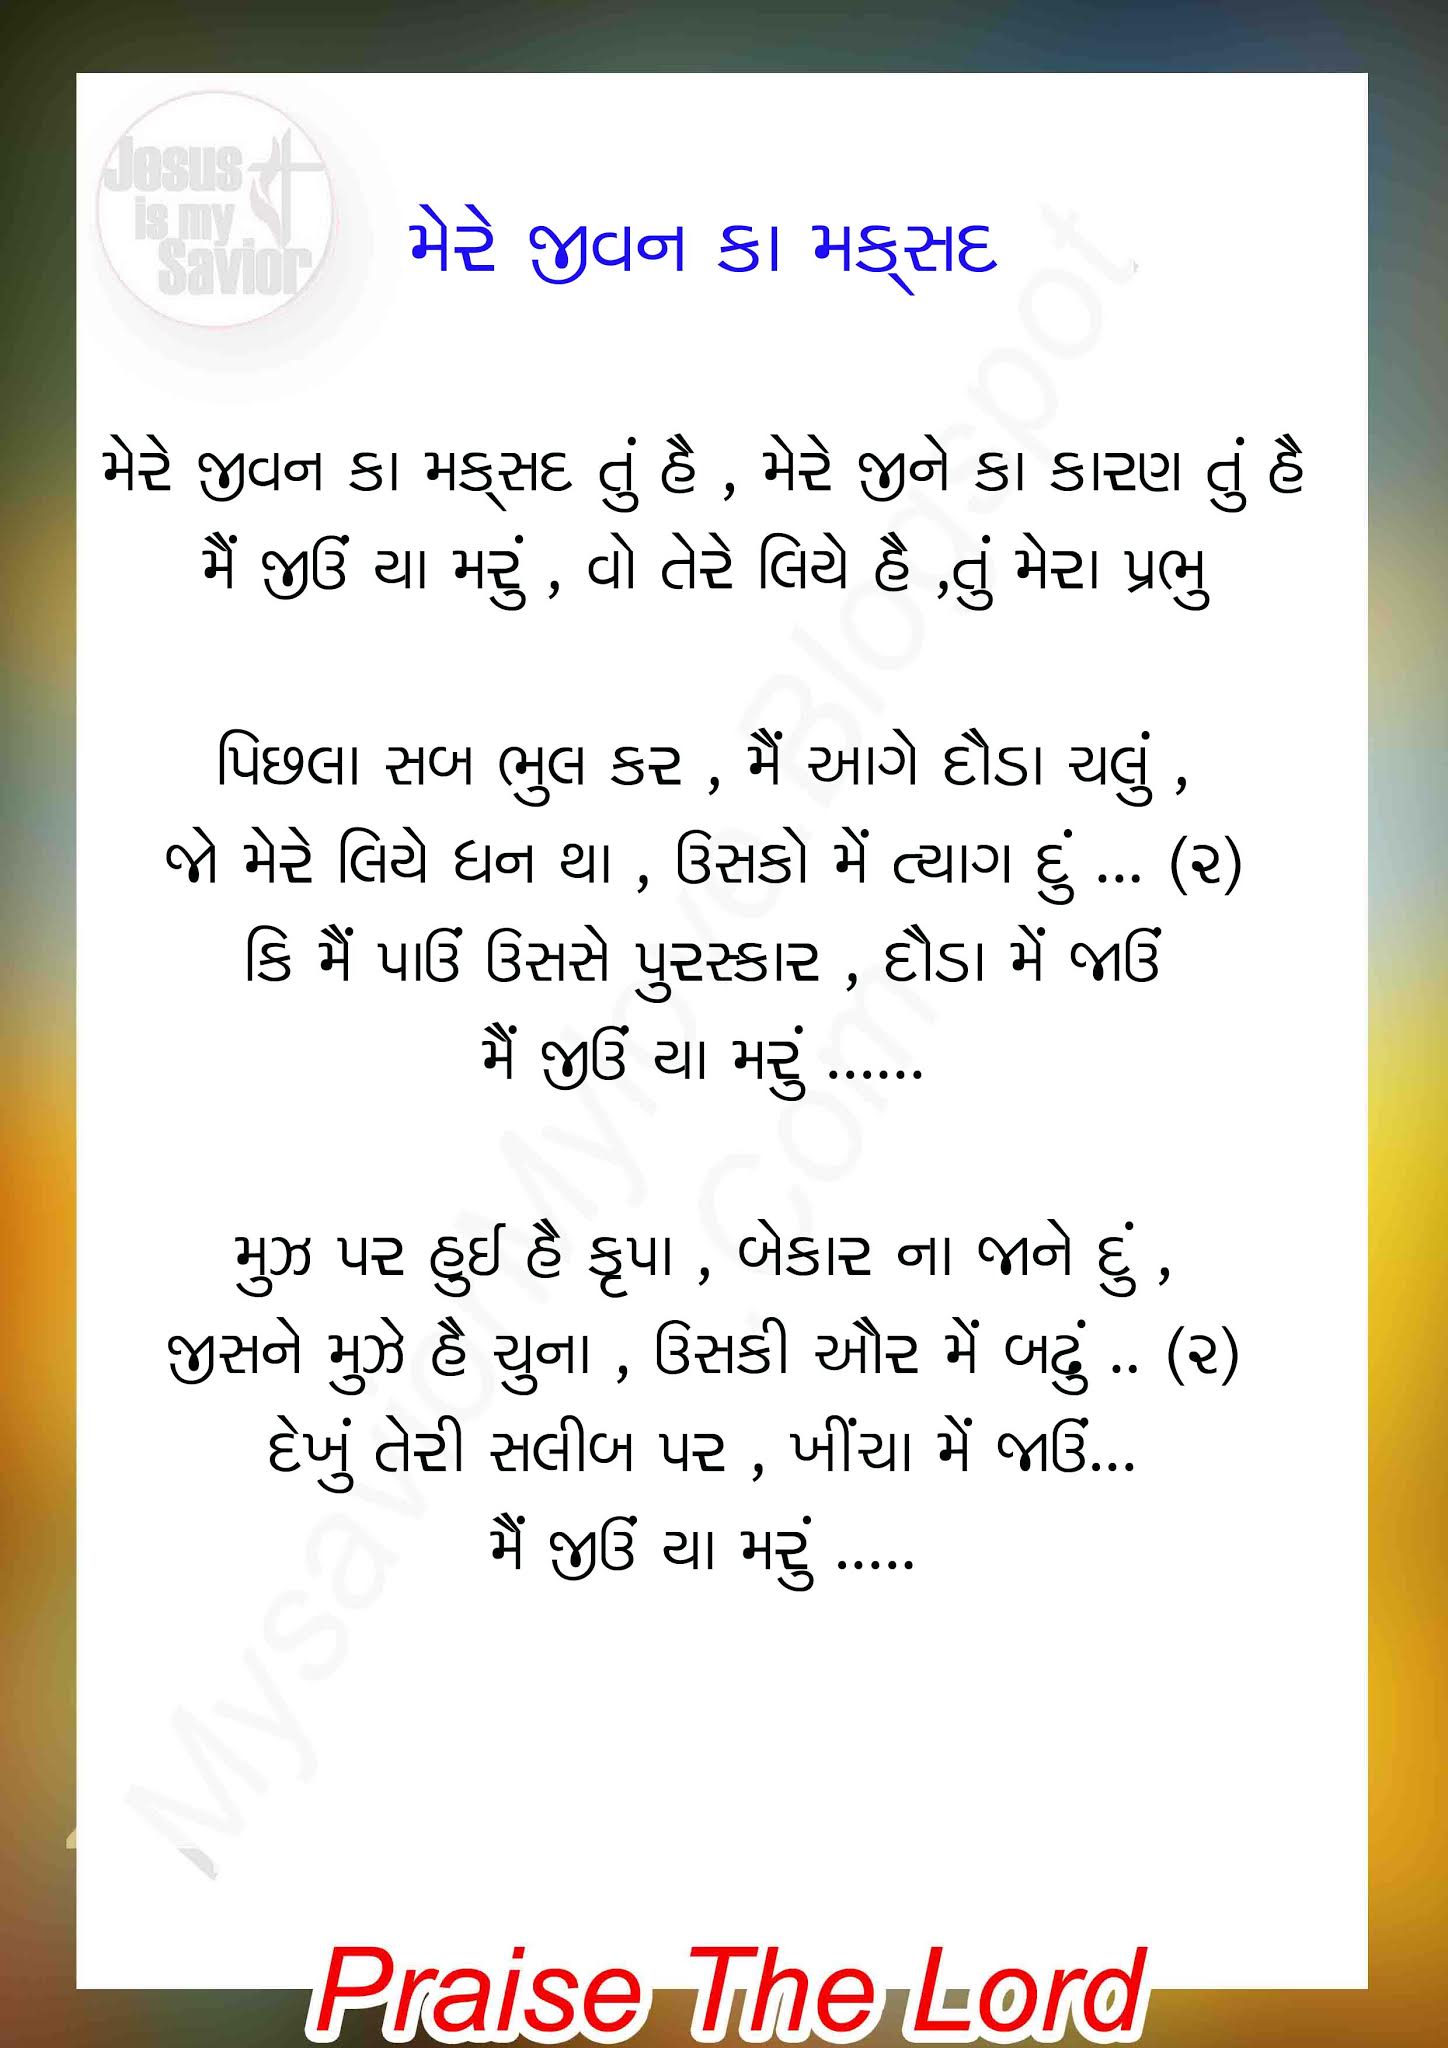 Jesus
is my
Savior
મેરે જીવન કા મક્સદ
મેરે જીવન કા મક્સદ તું હૈ , મેરે જીને કા કારણ તું હૈ
મૈં જીઉં યા મરું , વો તેરે લિયે હૈ ,તું મેરા પ્રભુ
પિછલા સબ ભુલ કર , મૈં આગે દૌડા ચલું ,
જો મેરે લિયે ધન થા , ઉસકો મેં ત્યાગ દું ... (૨)
કિ મૈં પાઉં ઉસસે પુરસ્કાર , દૌડા મેં જાઉં
મૈં જીઉં યા મરું ......
મુઝ પર હુઈ હૈ કૃપા , બેકાર ના જાને દું ,
જીસને મુઝે હૈ ચુના , ઉસકી ઔર મેં બઢું .. (૨)
દેખું તેરી સલીબ પર , ખીંચા મેં જાઉં...
મૈં જીઉં યા મરું .....
Praise The Lord